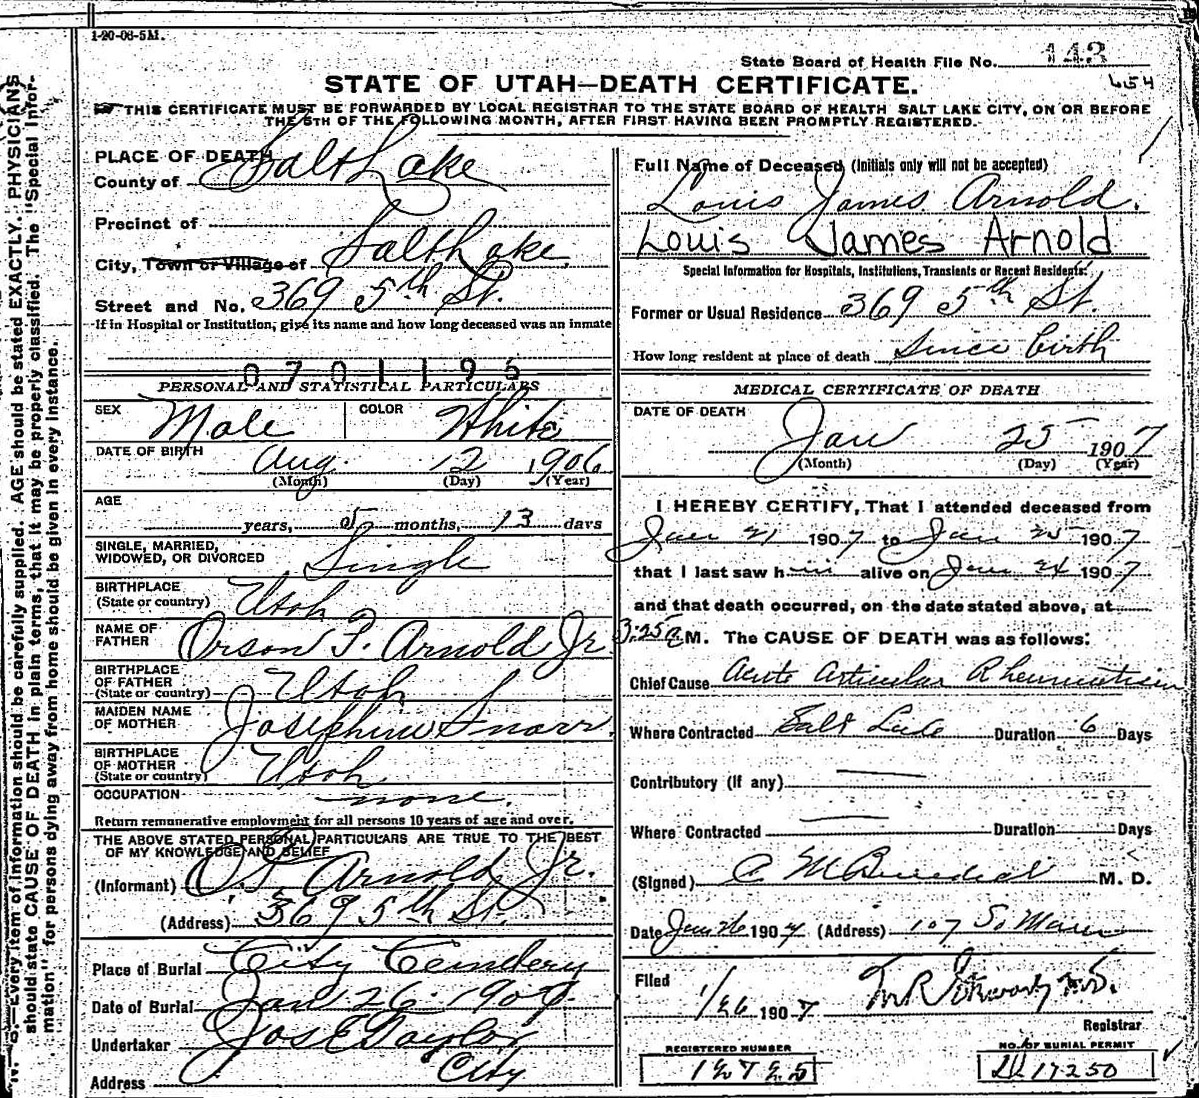 1-20-06-5M.
State Board of Health File No. 143
654
STATE OF UTAH—DEATH CERTIFICATE.
THIS CERTIFICATE MUST BE FORWARDED BY LOCAL REGISTRAR TO THE STATE BOARD OF HEALTH SALT LAKE CITY, ON OR BEFORE
THE 5TH OF THE FOLLOWING MONTH, AFTER FIRST HAVING BEEN PROMPTLY REGISTERED.
PLACE OF DEATH
County of Salt Lake
Precinct of
City, Town or Village of Salt Lake
Street and No. 369 5th St.
If in Hospital or Institution, give its name and how long deceased was an inmate
0701195
PERSONAL AND STATISTICAL PARTICULARS
SEX Male COLOR White
DATE OF BIRTH Aug. 12 1906
(Month) (Day) (Year)
AGE
years, 5 months, 13 days
SINGLE, MARRIED,
WIDOWED, OR DIVORCED Single
BIRTHPLACE
(State or country) Utah
NAME OF
FATHER Orson P. Arnold Jr.
BIRTHPLACE
OF FATHER
(State or country) Utah
MAIDEN NAME
OF MOTHER Josephine Snarr
BIRTHPLACE
OF MOTHER
(State or country) Utah
OCCUPATION none.
Return remunerative employment for all persons 10 years of age and over.
THE ABOVE STATED PERSONAL PARTICULARS ARE TRUE TO THE BEST
OF MY KNOWLEDGE AND BELIEF
(Informant) O.P. Arnold Jr.
(Address) 369 5th St.
Place of Burial City Cemetery
Date of Burial Jan 26 1907.
Undertaker Jos E Taylor
Address City
Full Name of Deceased (Initials only will not be accepted)
Louis James Arnold.
Louis James Arnold
Special Information for Hospitals, Institutions, Transients or Recent Residents:
Former or Usual Residence 369 5th St.
How long resident at place of death Since birth
MEDICAL CERTIFICATE OF DEATH
DATE OF DEATH
Jan 25 1907
(Month) (Day) (Year)
I HEREBY CERTIFY, That I attended deceased from
Jan 21 1907 to Jan 25 1907
that I last saw him alive on Jan 24 1907
and that death occurred, on the date stated above, at
3:25 a M. The CAUSE OF DEATH was as follows:
Chief Cause Acute Articular Rheumatism
Where Contracted Salt Lake Duration 6 Days
Contributory (if any)
Where Contracted Duration Days
(Signed) C M Benedict M. D.
Date Jan 26 1907 (Address) 107 So Main
Filed
1/26 1907
Registrar
REGISTERED NUMBER
12725
NO. OF BURIAL PERMIT
17250
N. B.—Every item of information should be carefully supplied. AGE should be stated EXACTLY. PHYSICIANS
should state CAUSE OF DEATH in plain terms, that it may be properly classified. The "Special Infor-
mation" for persons dying away from home should be given in every instance.